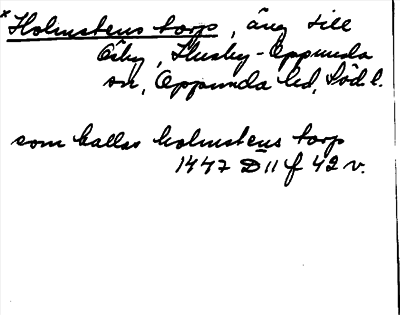 *Holmstens torp, äng till
Åsby, Husby-Oppunda
sn, Oppunda hd, Söd l.
som kallas holmstens torp
1447 D 11 f 42 v.